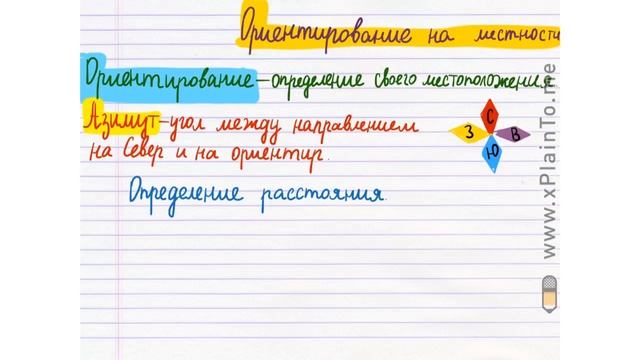 Ориентирование на местности
Ориентирование – определение своего местоположения
Азимут – угол между направлением
на Север и на ориентир.
С
З
В
Ю
Определение расстояния.
www.xPlainTo.me